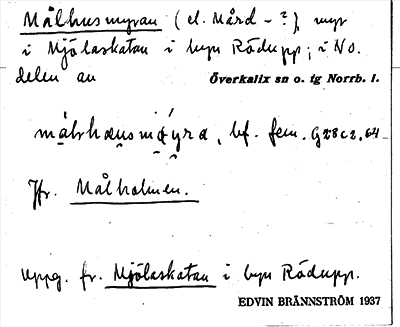 Målhusmyran (el. Mård - ?), myr
i Mjölaskatan i byn Rödupp; i NO.
delen av Överkalix sn o. tg Norrb. l.
bf. fem. G28c2,64
Jfr. Målholmen.
Uppg. fr. Mjölaskatan i byn Rödupp.
EDVIN BRÄNNSTRÖM 1937